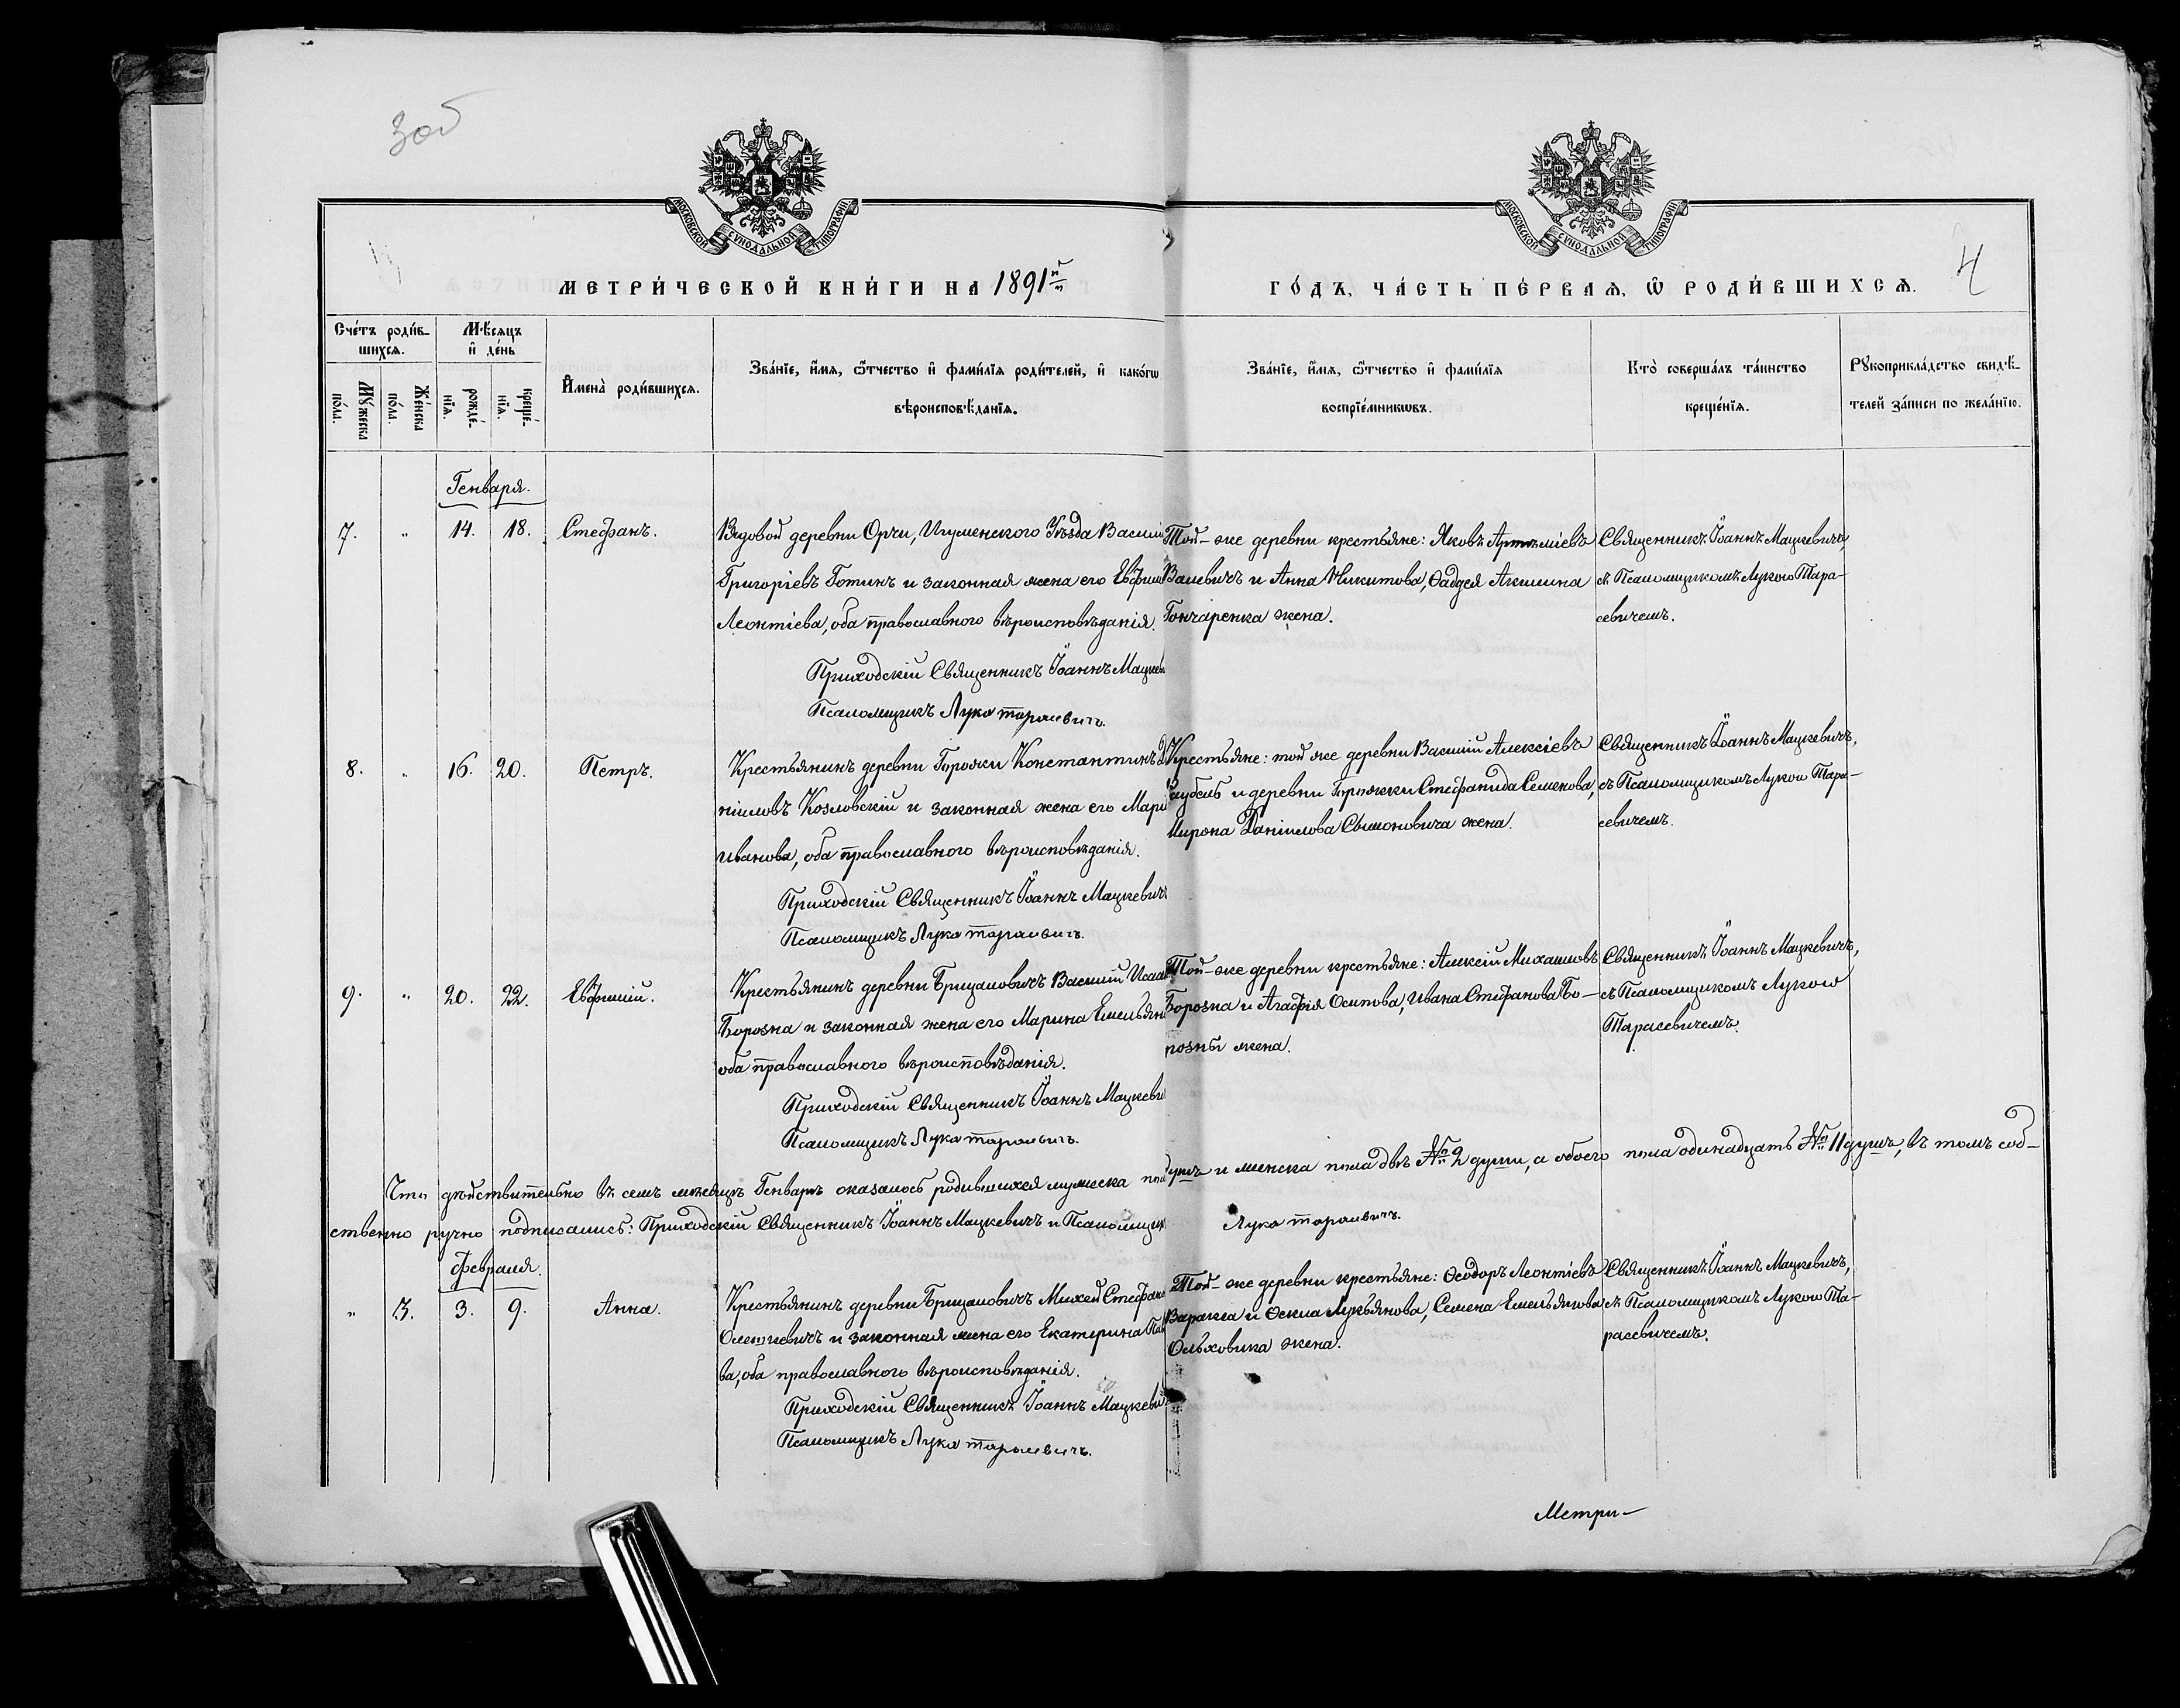 3об
МОСКОВСКОЙ СѴНОДАЛЬНОЙ ТИПОГРАФІИ
МОСКОВСКОЙ СѴНОДАЛЬНОЙ ТИПОГРАФІИ
МЕТРИ́ЧЕСКОЙ КНИ́ГИ НА 1891й
ГО́ДЪ, ЧА́СТЬ ПЕ́РВАѦ, Ѡ РОДИ́ВШИХСѦ.
4
Сче́тъ роди́в-
шихсѧ.
Мꙋ́жеска
по́ла.
Же́нска
по́ла.
Мѣ́сѧцъ
и҆ де́нь
рожде́-
нїѧ.
креще́-
нїѧ.
И҆мена̀ роди́вшихсѧ.
Зва́нїе, и҆́мѧ, ѻ҆́тчество и҆ фами́лїѧ роди́телей, и҆ како́гѡ
вѣроисповѣ́данїѧ.
Зва́нїе, и҆́мѧ, ѻ҆́тчество и҆ фами́лїѧ
воспрїе́мникѡвъ.
Кто̀ соверша́лъ та́инство
креще́нїѧ.
Рꙋкоприкла́дство свидѣ́-
телей за́писи по жела́нїю.
Генваря.
7. " 14. 18. Стефанъ.
Рядовой деревни Орчи, Игуменского Уѣзда
Григоріевъ Готинъ и законная жена его
Леонтіева, оба православного вѣроисповѣданія.
Приходскій Священникъ Іоаннъ
Псаломщикъ Лука Тарасевичъ.
Той-же деревни крестьяне: Яковъ Артеміевъ
и Анна Никитова, Фаддея Акимина
Гончаренка жена.
Священникъ Іоаннъ Мацкевичъ,
съ Псаломщикомъ Лукою Тара-
севичемъ.
8. " 16. 20. Петръ.
Крестьянинъ деревни Горожи Константинъ
ніиловъ Козловскій и законная жена его
Иванова, оба православного вѣроисповѣданія.
Приходскій Священникъ Іоаннъ Мацкевичъ
Псаломщикъ Лука Тарасевичъ.
Крестьяне: той же деревни Василій Алексіевъ
и деревни Стефанида Семенова,
Мирона Даніилова жена.
Священникъ Іоаннъ Мацкевичъ,
съ Псаломщикомъ Лукою Тара-
севичемъ.
9. " 20. 22. Евфимій.
Крестьянинъ деревни Брицаловичъ Василій
Борозна и законная жена его Марина
оба православного вѣроисповѣданія.
Приходскій Священникъ Іоаннъ
Псаломщикъ Лука Тарасевичъ.
Той-же деревни крестьяне: Алексій Михаиловъ
Борозна и Агафія Осипова, Ивана Стефанова Бо-
розны жена.
Священникъ Іоаннъ Мацкевичъ,
съ Псаломщикомъ Лукою
Тарасевичемъ.
Что дѣйствительно въ семъ мѣсяцѣ Генварѣ оказалось родившихся мужеска пола душъ и женска пола двѣ № 2 души, а обоего пола одинадцать № 11 душъ, въ томъ соб-
ственно ручно подписались: Приходскій Священникъ Іоаннъ Мацкевичъ и Псаломщикъ Лука Тарасевичъ.
Февраля.
" 3. 3. 9. Анна.
Крестьянинъ деревни Брицаловичъ Михей
Олешкевичъ и законная жена его Екатерина
ва, оба православного вѣроисповѣданія.
Приходскій Священникъ Іоаннъ
Псаломщикъ Лука Тарасевичъ.
Той-же деревни крестьяне: Ѳеодоръ Леонтіевъ
и Ѳекла Лукьянова, Семена Емельянова
Ольховика жена.
Священникъ Іоаннъ Мацкевичъ,
съ Псаломщикомъ Лукою Та-
расевичемъ.
Метри-